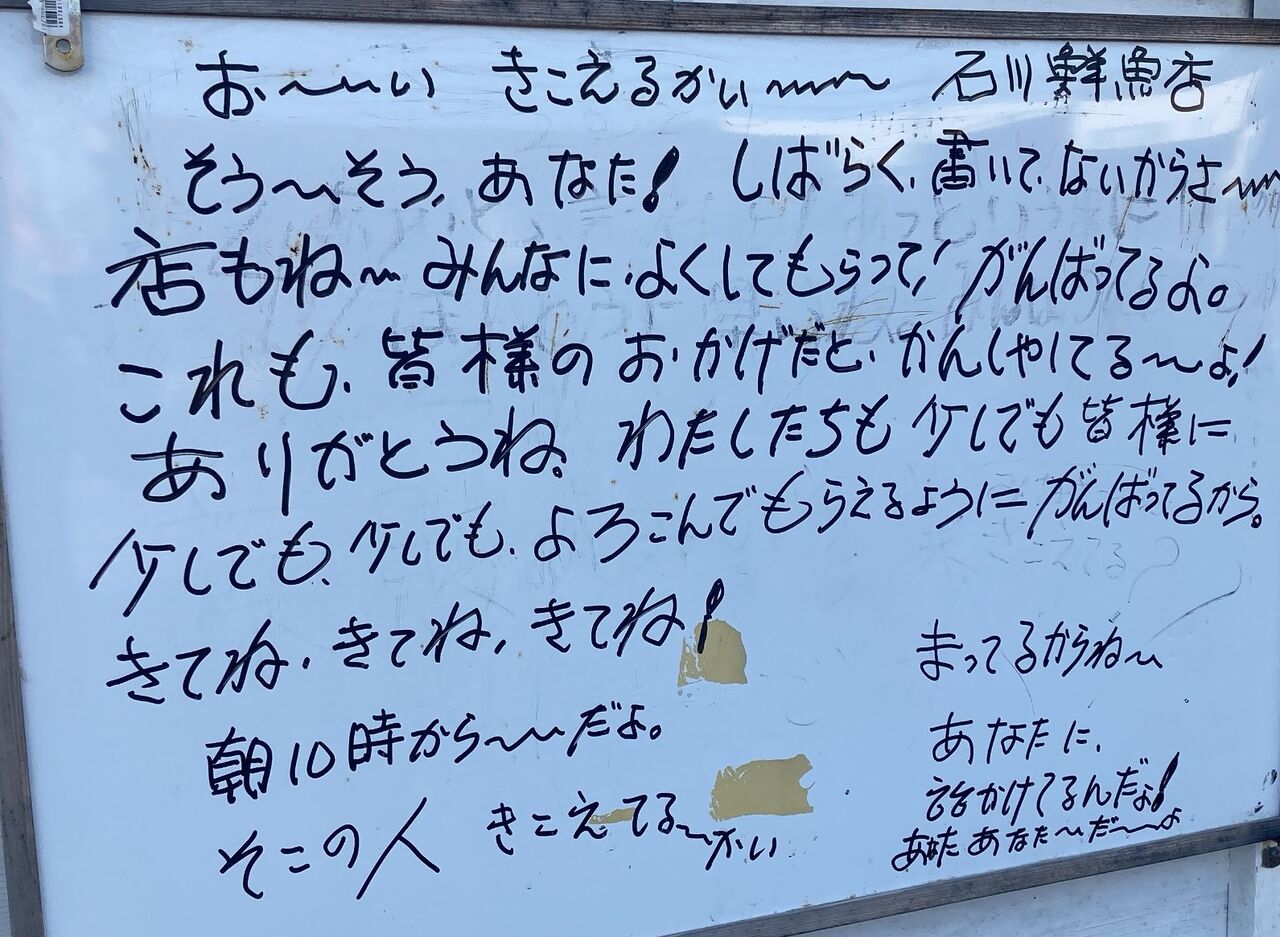 お〜〜い きこえるかい〜〜〜 石川鮮魚店
そう〜そう、あなた! しばらく、書いて、ないからさ〜〜
店もね〜みんなに、よくしてもらって! がんばってるよ。
これも、皆様のおかげだと、かんしゃしてる〜よ!
ありがとうね。わたしたちも少しでも皆様に
少しでも、少しでも、よろこんでもらえるようにがんばってるから。
きてね、きてね、きてね!
まってるからね〜
朝10時から〜〜だよ。
あなたに、
話かけてるんだよ!
そこの人 きこえてる〜かい
あなたあなた〜だ〜〜よ